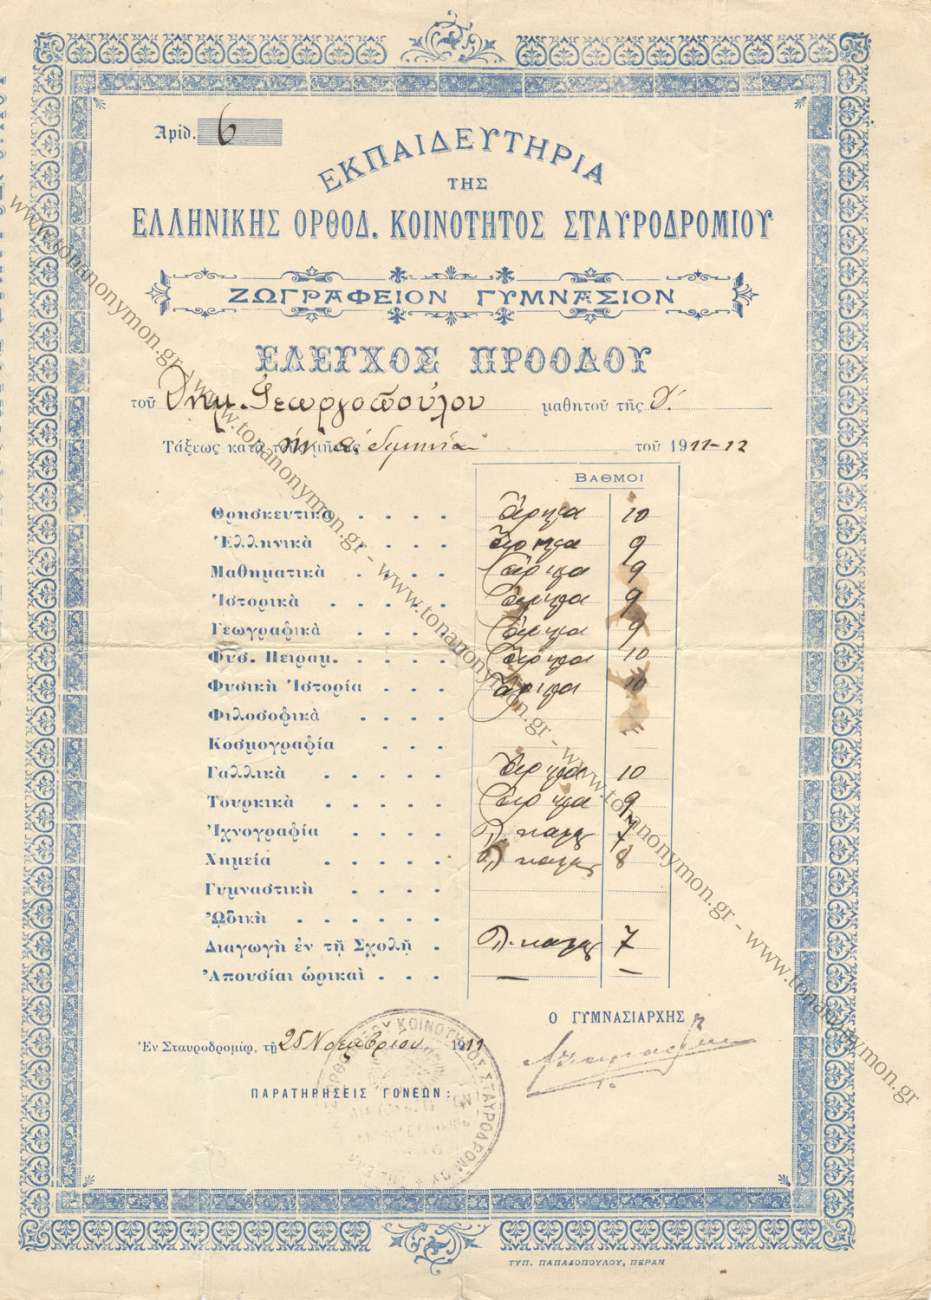 Ἀριθ. 6
ΕΚΠΑΙΔΕΥΤΗΡΙΑ
ΤΗΣ
ΕΛΛΗΝΙΚΗΣ ΟΡΘΟΔ. ΚΟΙΝΟΤΗΤΟΣ ΣΤΑΥΡΟΔΡΟΜΙΟΥ
ΖΩΓΡΑΦΕΙΟΝ ΓΥΜΝΑΣΙΟΝ
ΕΛΕΓΧΟΣ ΠΡΟΟΔΟΥ
τοῦ Δημ. Γεωργοπούλου μαθητοῦ τῆς
Τάξεως κατὰ τοῦ 1911-12
ΒΑΘΜΟΙ
Θρησκευτικὰ . . . . ἄριστα 10
Ἑλληνικὰ . . . . ἄριστα 9
Μαθηματικὰ . . . . ἄριστα 9
Ἱστορικὰ . . . . ἄριστα 9
Γεωγραφικὰ . . . . ἄριστα 9
Φυσ. Πειραμ. . . . . ἄριστα 10
Φυσικὴ Ἱστορία . . . ἄριστα 10
Φιλοσοφικὰ . . . .
Κοσμογραφία . . .
Γαλλικὰ . . . . . ἄριστα 10
Τουρκικὰ . . . . . ἄριστα 9
Ἰχνογραφία . . . . λ. καλῶς 7
Χημεία . . . . . λ. καλῶς 8
Γυμναστικὴ . . . .
ᾨδικὴ . . . . . .
Διαγωγὴ ἐν τῇ Σχολῇ . λ. καλῶς 7
Ἀπουσίαι ὡρικαὶ . . . — —
Ο ΓΥΜΝΑΣΙΑΡΧΗΣ
Ἐν Σταυροδρομίῳ, τῇ 25 Νοεμβρίου 1911
ΠΑΡΑΤΗΡΗΣΕΙΣ ΓΟΝΕΩΝ:
ΚΟΙΝΟΤΗΤΟΣ ΣΤΑΥΡΟΔΡΟΜΙΟΥ
ΤΥΠ. ΠΑΠΑΔΟΠΟΥΛΟΥ, ΠΕΡΑΝ
www.tonanonymon.gr - www.tonanonymon.gr - www.tonanonymon.gr - www.tonanonymon.gr - www.tonanonymon.gr